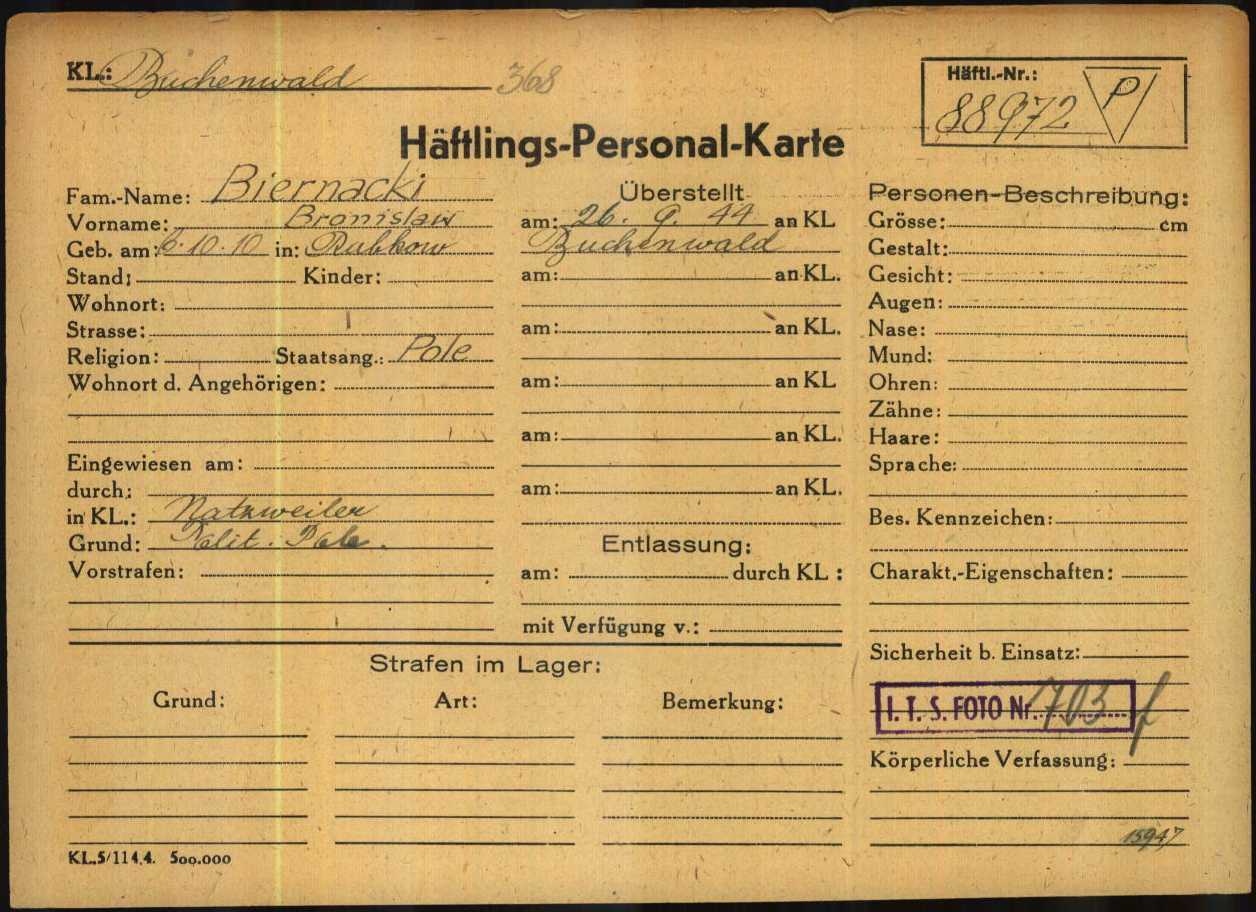 KL.: Buchenwald 368
Häftl.-Nr.:
88972 P
Häftlings-Personal-Karte
Fam.-Name: Biernacki
Vorname: Bronislaw
Geb. am: 6.10.10 in:
Stand: Kinder:
Wohnort:
Strasse:
Religion: Staatsang.: Pole
Wohnort d. Angehörigen:
Eingewiesen am:
durch:
in KL.: Natzweiler
Grund: Polit. Pole.
Vorstrafen:
Überstellt
am: 26. 9. 44 an KL
Buchenwald
am: an KL.
am: an KL.
am: an KL
am: an KL.
am: an KL.
Entlassung:
am: durch KL :
mit Verfügung v.:
Personen-Beschreibung:
Grösse: cm
Gestalt:
Gesicht:
Augen:
Nase:
Mund:
Ohren:
Zähne:
Haare:
Sprache:
Bes. Kennzeichen:
Charakt.-Eigenschaften:
Sicherheit b. Einsatz:
I. T. S. FOTO Nr. 1703 f
Körperliche Verfassung:
15947
Strafen im Lager:
Grund: Art: Bemerkung:
KL.5/11 4.4. 500.000